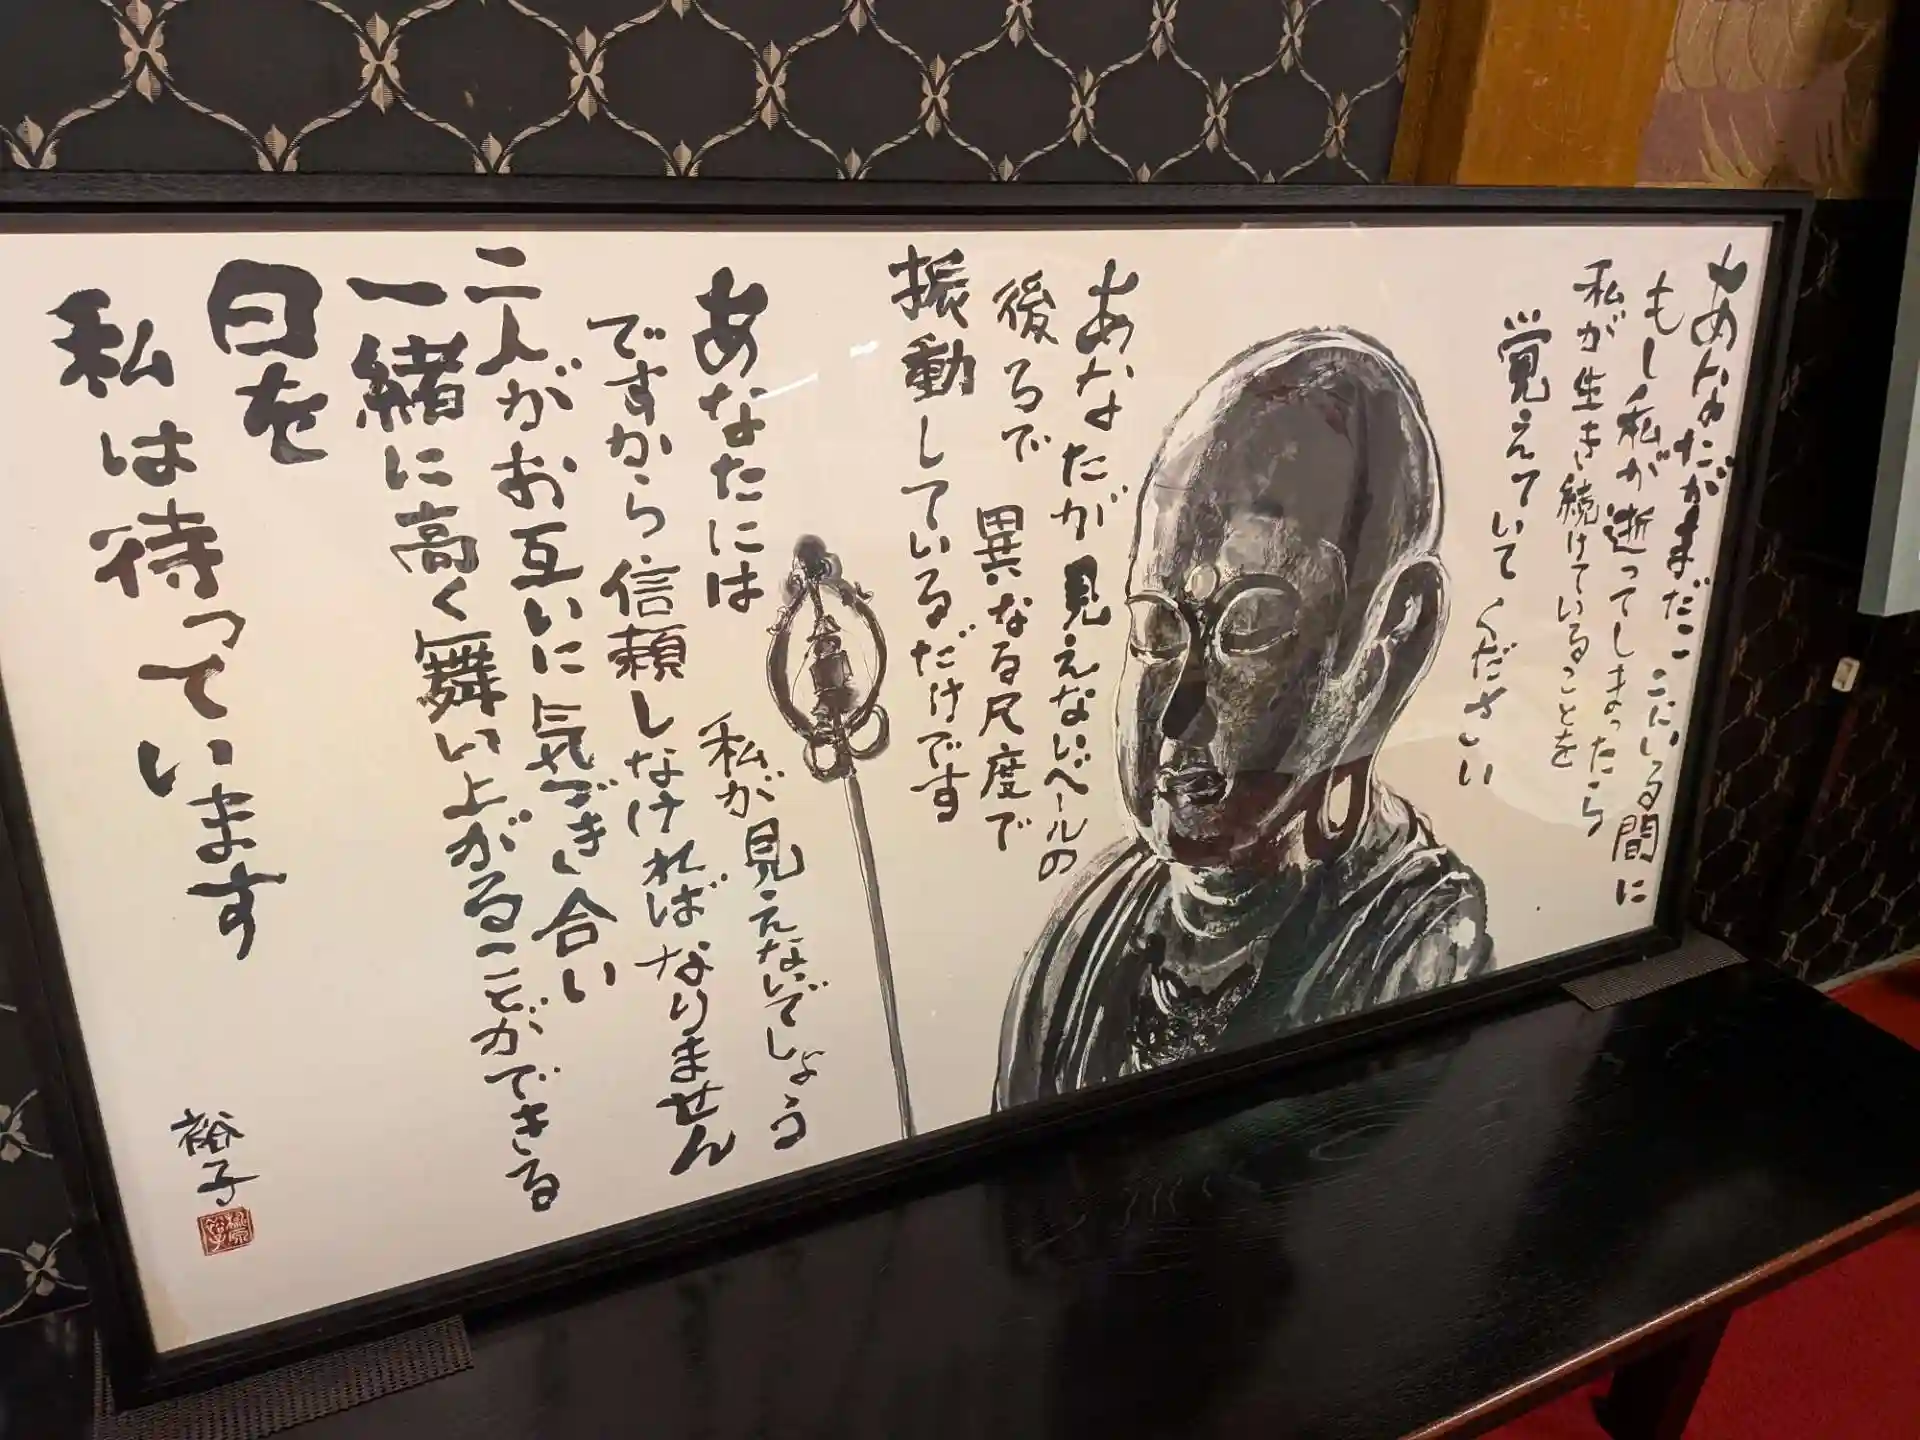 あなたがまだここにいる間に
もし私が逝ってしまったら
私が生き続けていることを
覚えていてください
あなたが見えないベールの
後ろで 異なる尺度で
振動しているだけです
あなたには
私が見えないでしょう
ですから信頼しなければなりません
二人がお互いに気づき合い
一緒に高く舞い上がることができる
日を
私は待っています
裕子